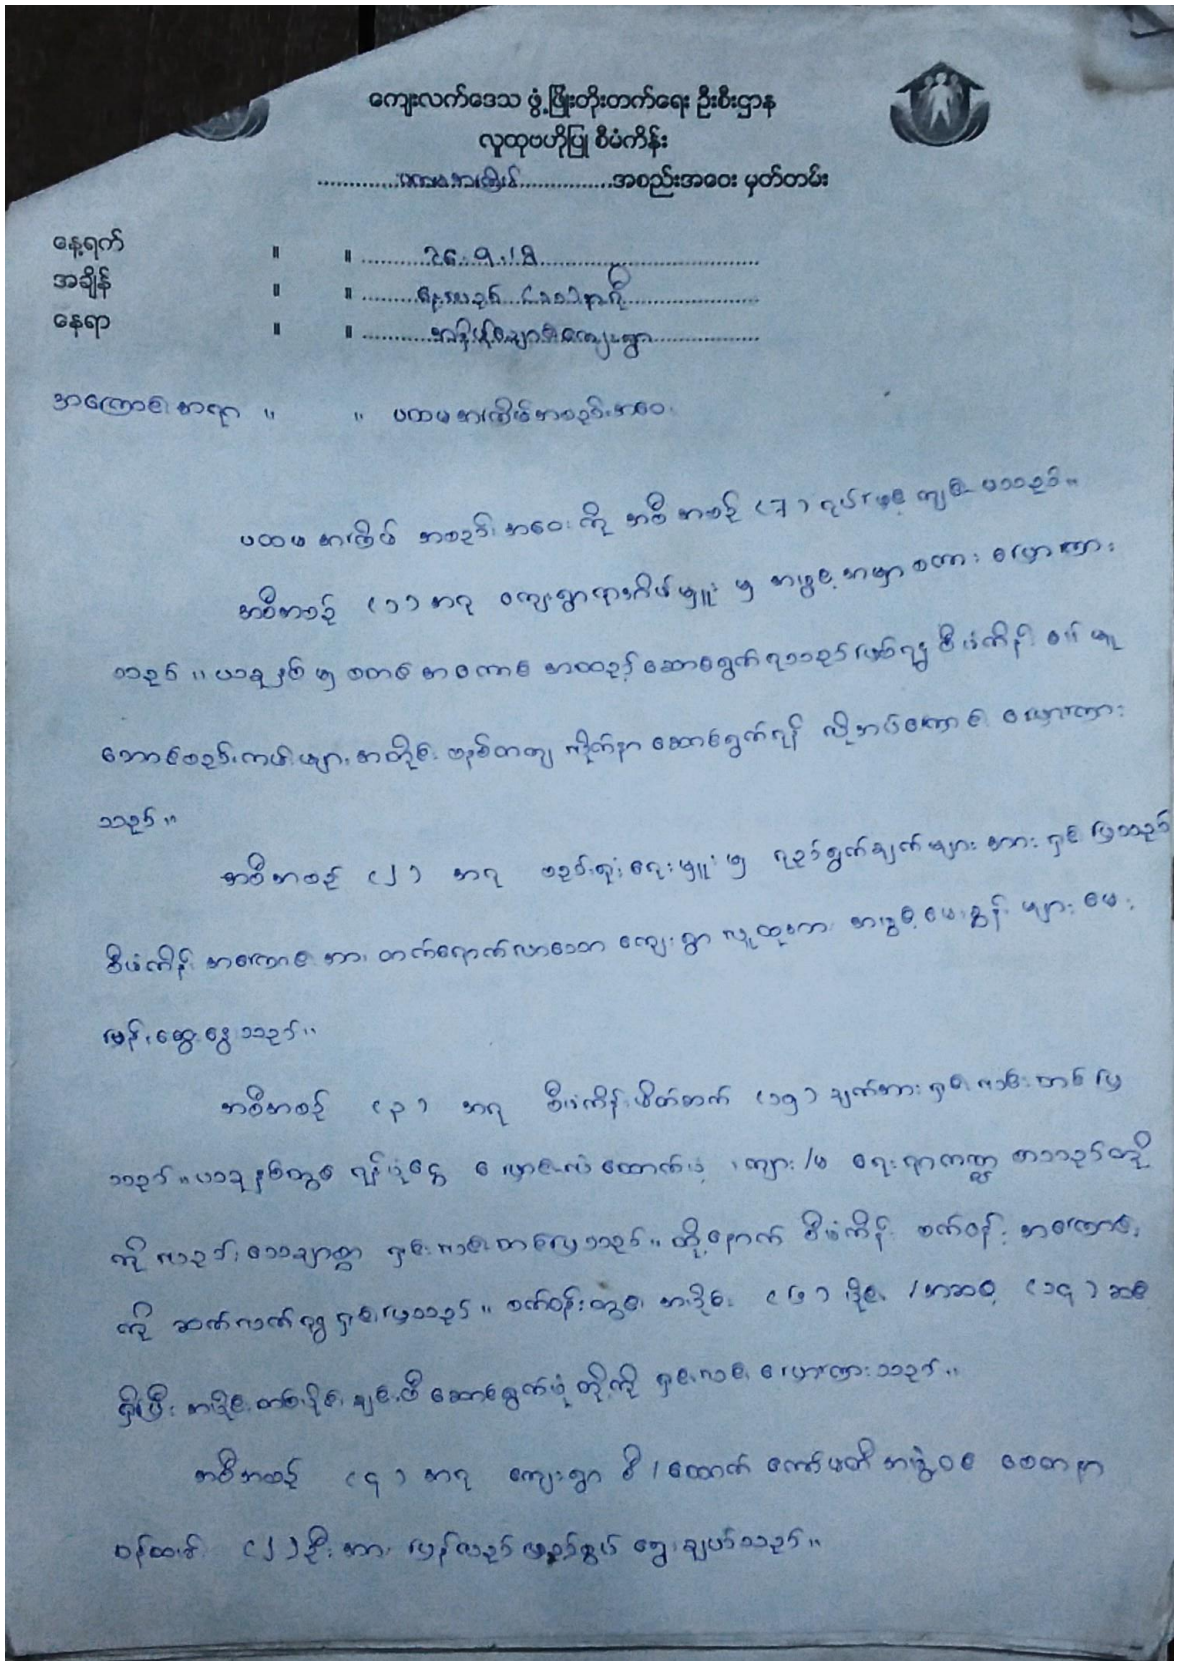 ကျေးလက်ဒေသ ဖွံ့ဖြိုးတိုးတက်ရေး ဦးစီးဌာန
လူထုဗဟိုပြု စီမံကိန်း
ပထမအကြိမ် အစည်းအဝေး မှတ်တမ်း
နေ့ရက် ။ ။ ၂၆.၇.၁၅
အချိန် ။ ။ နေ့လည် (၁း၀၀)နာရီ
နေရာ ။ ။
အကြောင်းအရာ ။ ။ ပထမအကြိမ်အစည်းအဝေး
ပထမအကြိမ် အစည်းအဝေးကို အစီအစဉ် (၇) ရပ်ဖြင့် ကျင်းပသည်။
အစီအစဉ် (၁) အရ ကျေးရွာရာအိမ်မှူးမှ အဖွင့်အမှာစကား ပြောကြား
သည်။ ယခုနှစ်မှ စတင်အကောင်အထည်ဆောင်ရွက်ရသည်ဖြစ်ရ၍ စီမံကိန်း ပေါ်မူ
ဘောင်စည်းကမ်းများအတိုင်း စနစ်တကျ လိုက်နာဆောင်ရွက်ရန် လိုအပ်ကြောင်း ပြောကြား
သည်။
အစီအစဉ် (၂) အရ စည်းရုံးရေးမှူးမှ ရည်ရွက်ချက်များအား ရှင်းပြသည်
စီမံကိန်းအကြောင်းအား တက်ရောက်လာသော ကျေးရွာလူထုအား အဖွင့်မေးခွန်းများ မေး
မြန်းဆွေးနွေးသည်။
အစီအစဉ် (၃) အရ စီမံကိန်းမိတ်ဆက် (၁၅) ချက်အား ရှင်းလင်းတင်ပြ
သည်။ ယခုနှစ်တွင် ရန်ပုံငွေ ပြောင်းလဲထောက်ပံ့၊ ကျား/မ ရေးရာကဏ္ဍ စသည်တို့
ကို လည်းသေချာစွာ ရှင်းလင်းတင်ပြသည်။ ထို့နောက် စီမံကိန်း စက်ဝန်းအကြောင်း
ကို ဆက်လက်၍ ရှင်းပြသည်။ စက်ဝန်းတွင် အပိုင်း (၆) ပိုင်း / အဆင့် (၁၄) ဆင့်
ရှိပြီး အပိုင်းတစ်ပိုင်းချင်းစီ ဆောင်ရွက်ပုံတို့ကို ရှင်းလင်းပြောကြားသည်။
အစီအစဉ် (၄) အရ ကျေးရွာ စီ/ထောက် ကော်မတီအဖွဲ့ဝင် စေတနာ
ဝန်ထမ်း (၂)ဦးအား ပြန်လည်ဖြည့်စွက် ရွေးချယ်သည်။